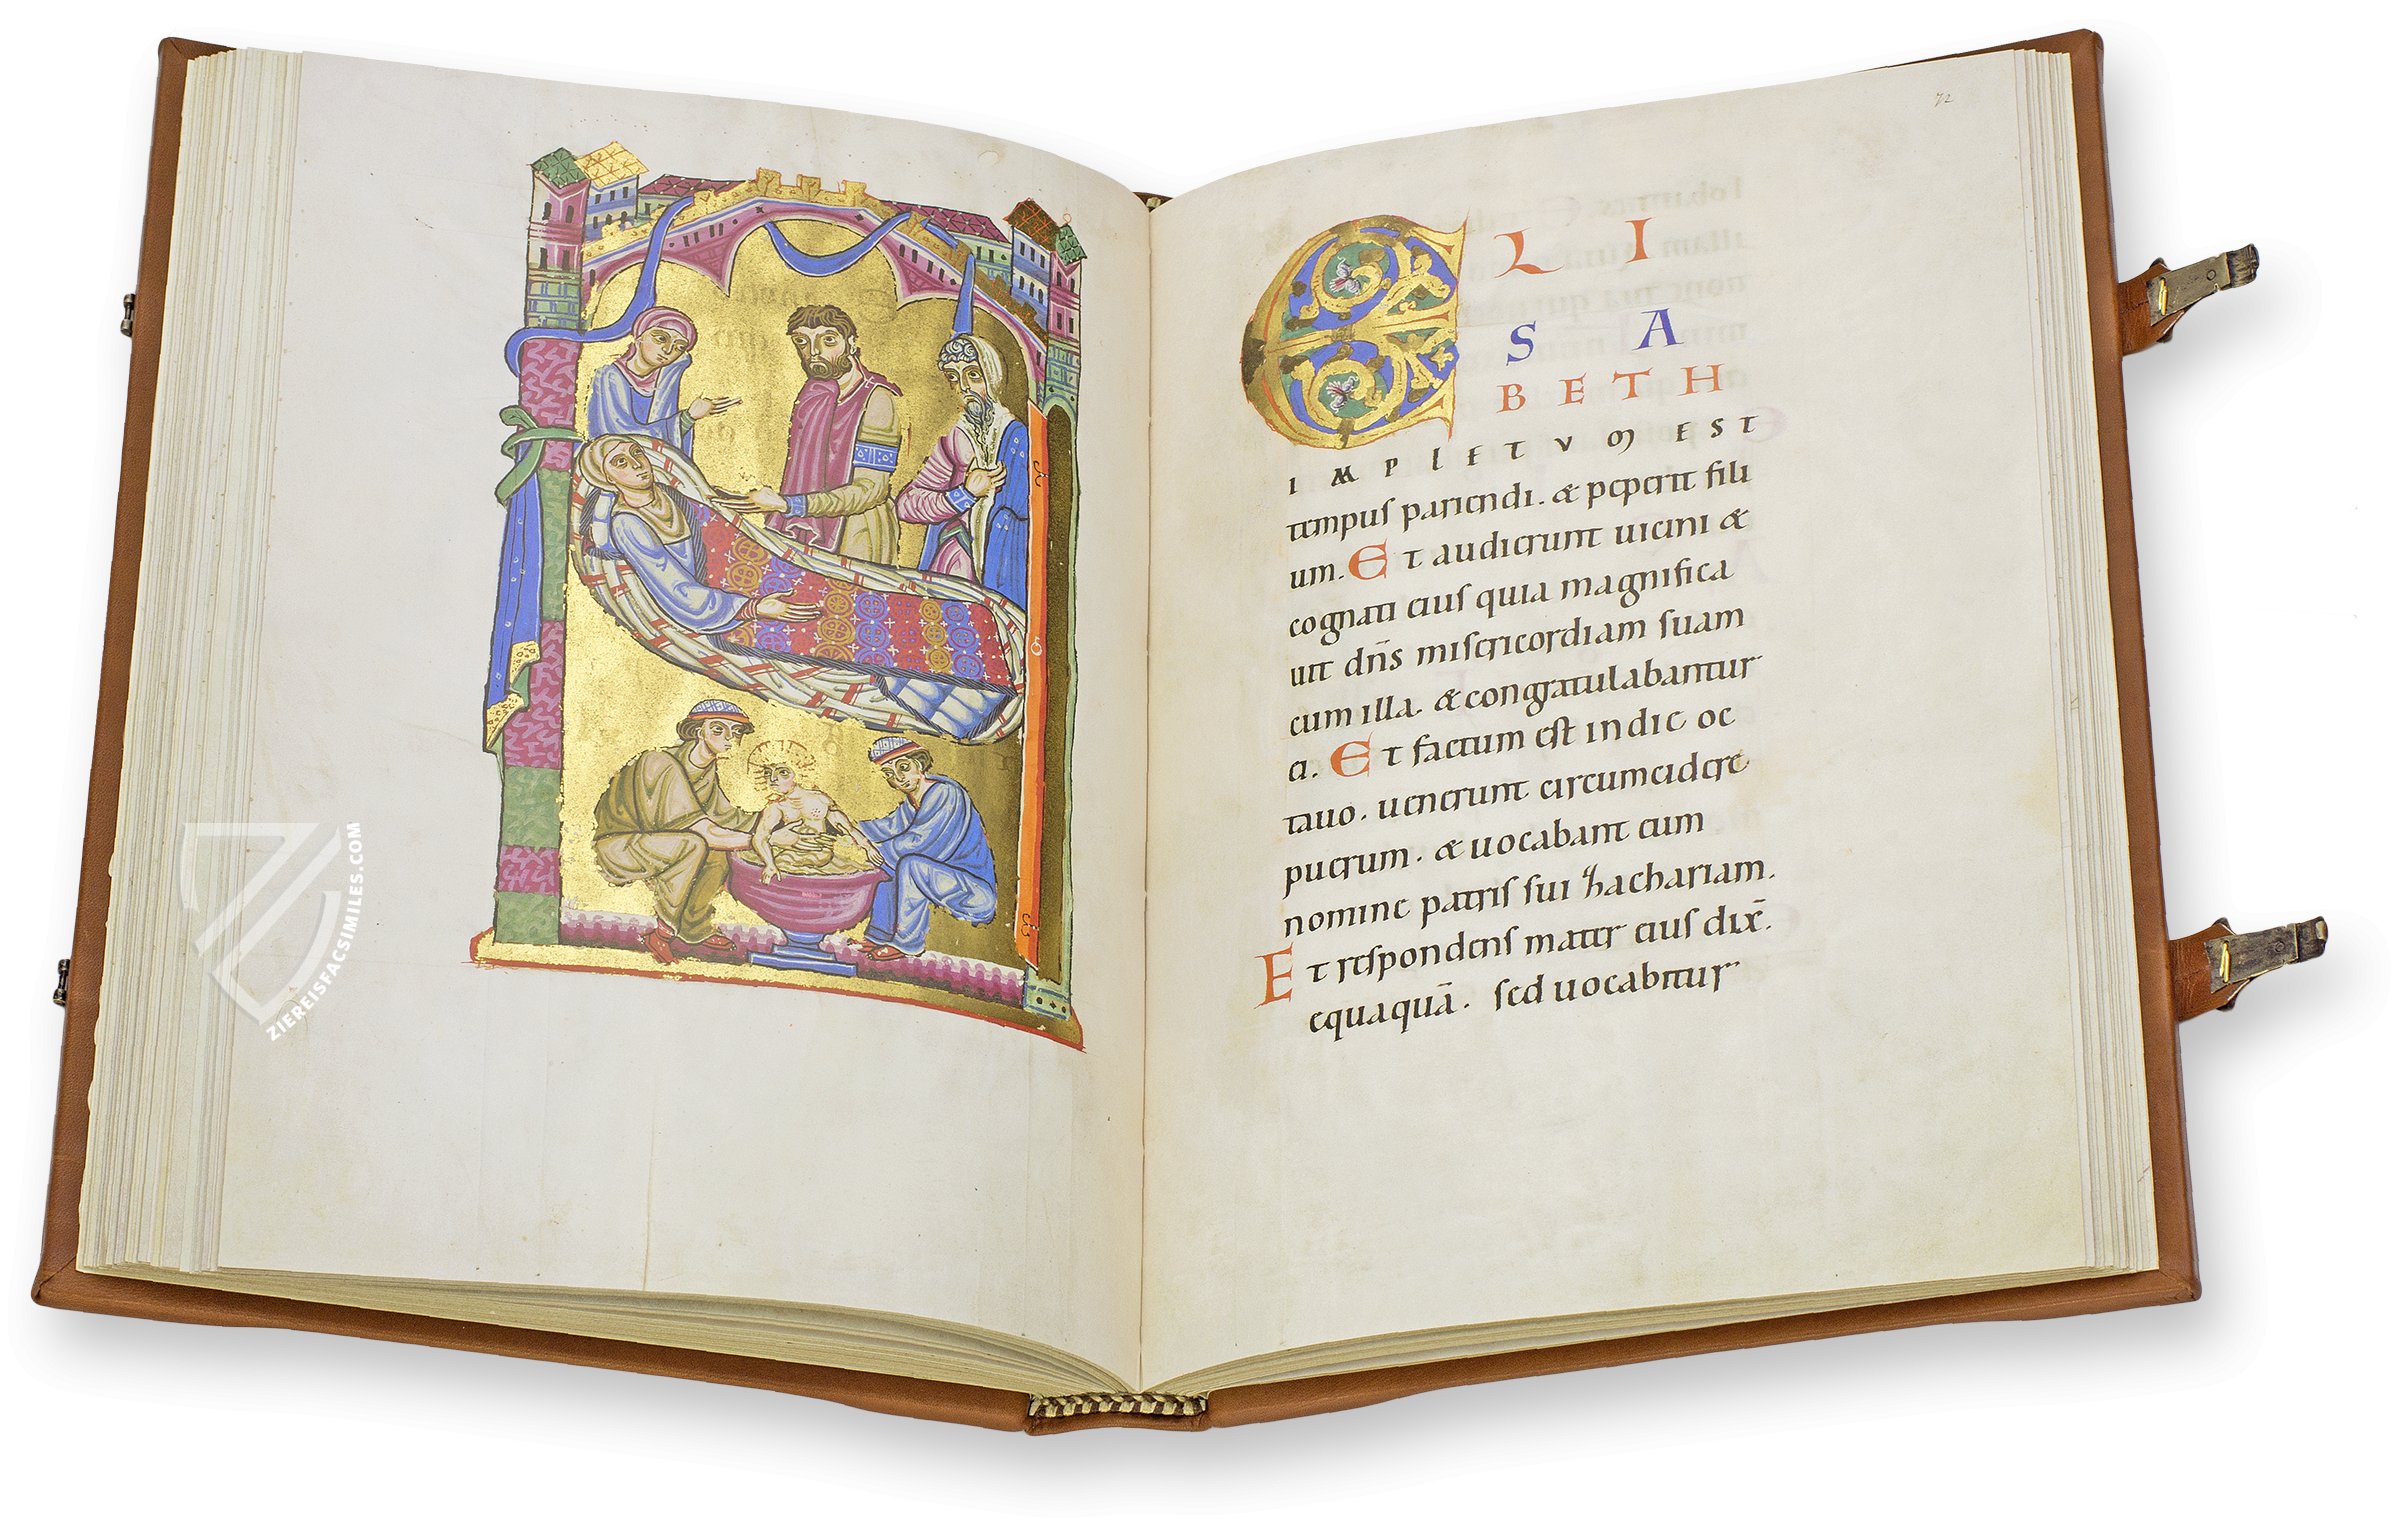 ZIEREISFACSIMILES.COM
72
ELI
SA
BETH
IMPLETVM EST
tempus pariendi. & peperit fili
um. Et audierunt uicini &
cognati eius quia magnifica
uit dn̄s misericordiam suam
cum illa. & congratulabantur
ei. Et factum est in die oc
tauo. uenerunt circumcidere
puerum. & uocabant eum
nomine patris sui zachariam.
Et respondens mater eius dix̄.
equaquā. sed uocabitur